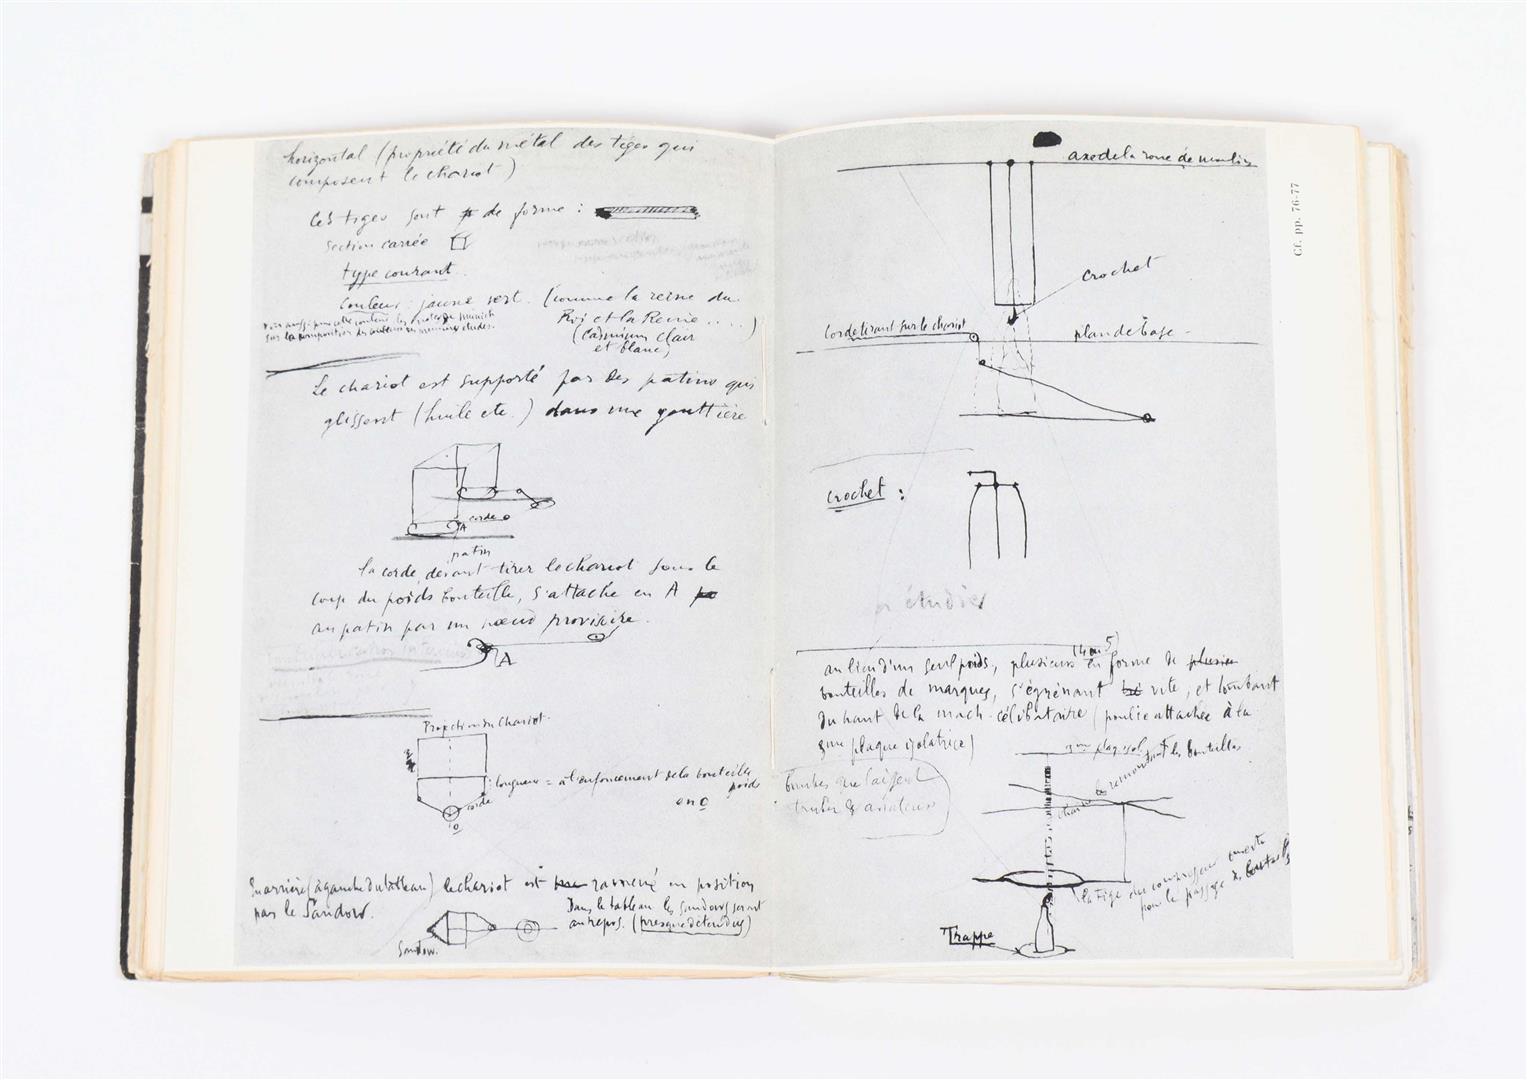 horizontal (propriété du métal des tiges qui
composent le chariot)
Ces tiges sont de forme :
section carrée
type courant.
couleur : jaune vert. (comme la reine du
Roi et la Reine ....)
(cadmium clair
et blanc)
Le chariot est supporté par des patins qui
glissent (huile etc.) dans une gouttière
corde
A
patin
la corde, devant tirer le chariot sous le
coup du poids bouteille, s'attache en A
au patin par un nœud provisoire.
A
Projection du chariot.
longueur = à l'enfoncement de la bouteille
poids
en o
corde
o
En arrière (à gauche du tableau) le chariot est ramené en position
par le Sandow.
Dans le tableau les sandows seront
au repos. (presque détendus)
Sandow.
axe de la roue de moulin
Cf. pp. 76-77
crochet
corde tirant sur le chariot
plan de base
crochet :
à étudier
(4 ou 5)
au lieu d'un seul poids, plusieurs en forme de plusieu
bouteilles de marques, s'égrénant vite, et tombant
du haut de la mach. célibataire (poulie attachée à la
3me plaque isolatrice)
3me plaq isol
remontant les bouteilles
la tige du compresseur ouverte
pour le passage
Trappe